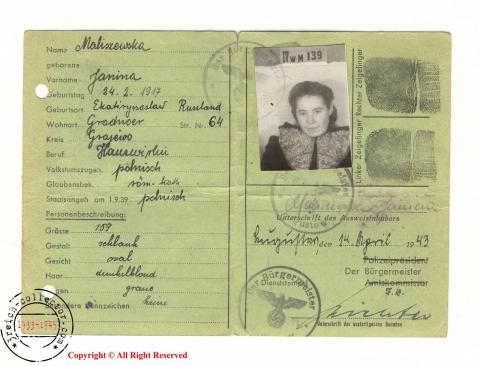 Name Maliszewska
geborene
Vorname Janina
Geburtstag 24. 2. 1917
Geburtsort Ekatirynoslav Russland
Wohnort Str. Nr. 64
Kreis Grajewo
Beruf
Volkstumszugeh. polnisch
Glaubensbek. röm. kath
Staatsangeh. am 1.9.39 polnisch
Personenbeschreibung:
Grösse 159
Gestalt schlank
Gesicht oval
Haar dunkelblond
grau
Besondere Kennzeichen keine
IV W M 139
Rechter Zeigefinger
Linker Zeigefinger
Unterschrift des Ausweisinhabers
14. April 1943
Polizeipräsident
Der Bürgermeister
Amtskommissar
Dienststempel
Der Bürgermeister
Unterschrift des ausfertigenden Beamten
3reich-collector.com
1933-1945
Copyright © All Right Reserved